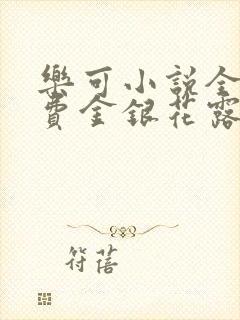 樂可小説全
費金銀花露
符蓓